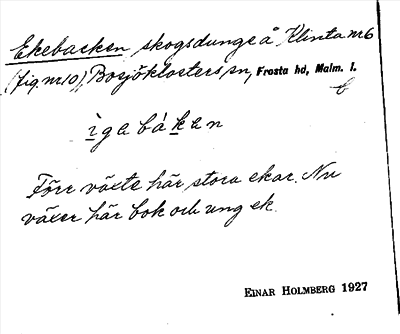 Ekebacken skogsdunge å Klinta nr 6
(fig. nr 10), Bosjöklosters sn, Frosta hd, Malm. l.
ìgabákan
Förr växte här stora ekar. Nu
växer här bok och ung ek.
EINAR HOLMBERG 1927